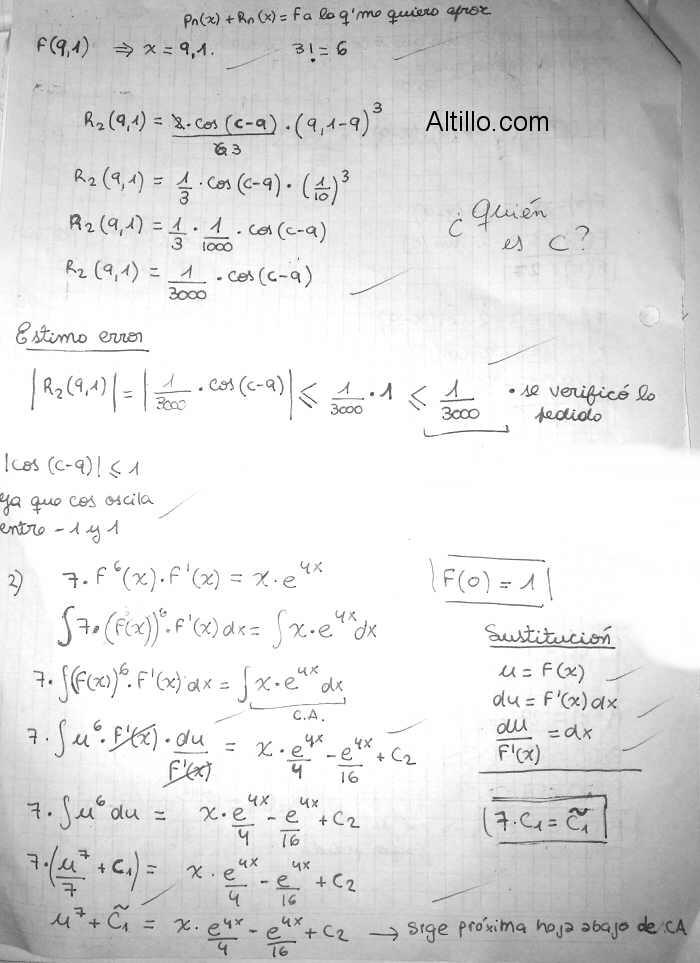 Pn(x) + Rn(x) = Fa lo q' me quiero aprox
F(9,1) ⇒ x = 9,1. 3! = 6
R₂(9,1) = 2·cos(c-9)/6 3 · (9,1-9)³
Altillo.com
R₂(9,1) = 1/3 · cos(c-9) · (1/10)³
R₂(9,1) = 1/3 · 1/1000 · cos(c-9)
¿Quién es c?
R₂(9,1) = 1/3000 · cos(c-9)
Estimo error
|R₂(9,1)| = |1/3000 · cos(c-9)| ⩽ 1/3000 · 1 ⩽ 1/3000 · se verificó lo pedido
|cos(c-9)| ⩽ 1
ya que cos oscila
entre -1 y 1
2) 7·F⁶(x)·F'(x) = x·e⁴ˣ |F(0) = 1|
∫7·(F(x))⁶·F'(x)dx = ∫x·e⁴ˣdx
Sustitución
7·∫(F(x))⁶·F'(x)dx = ∫x·e⁴ˣdx
C.A.
u = F(x)
du = F'(x)dx
du/F'(x) = dx
7·∫u⁶·F'(x)·du/F'(x) = x·e⁴ˣ/4 - e⁴ˣ/16 + C2
7·∫u⁶du = x·e⁴ˣ/4 - e⁴ˣ/16 + C2
|7·C1 = C̃1|
7·(u⁷/7 + C1) = x·e⁴ˣ/4 - e⁴ˣ/16 + C2
u⁷ + C̃1 = x·e⁴ˣ/4 - e⁴ˣ/16 + C2 → sige próxima hoja abajo de CA